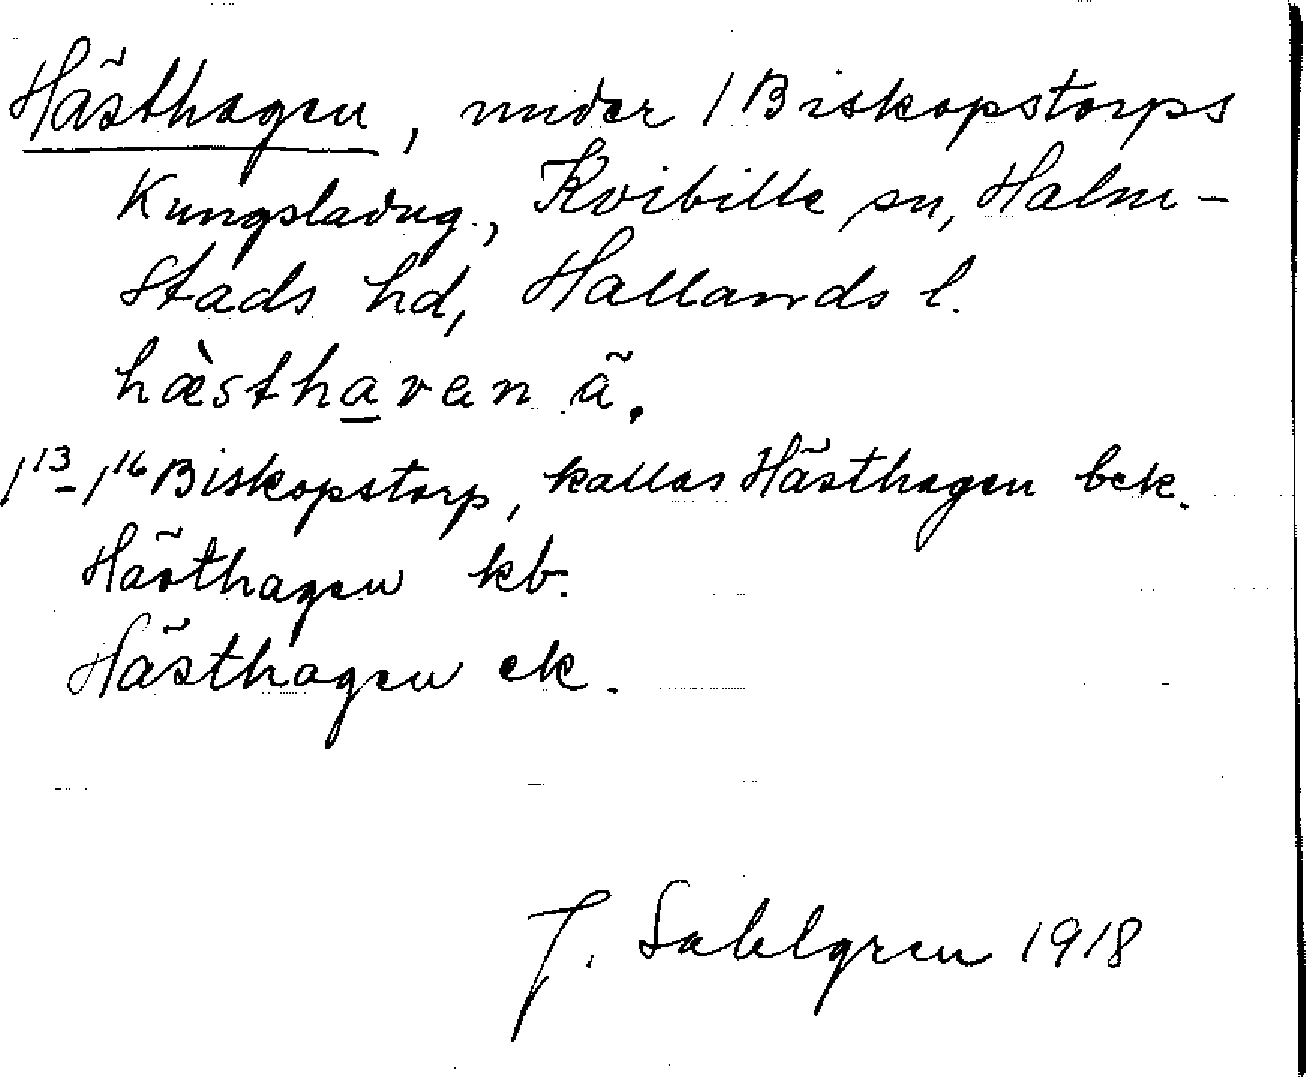 Hästhagen, under 1 Biskopstorps
Kungsladug., Kvibille sn, Halm-
stads hd, Hallands l.
hæ̀sthavan ã.
1¹³-1¹⁶ Biskopstorp, kallas Hästhagen bek.
Hästhagen kb.
Hästhagen ek.
J. Sahlgren 1918